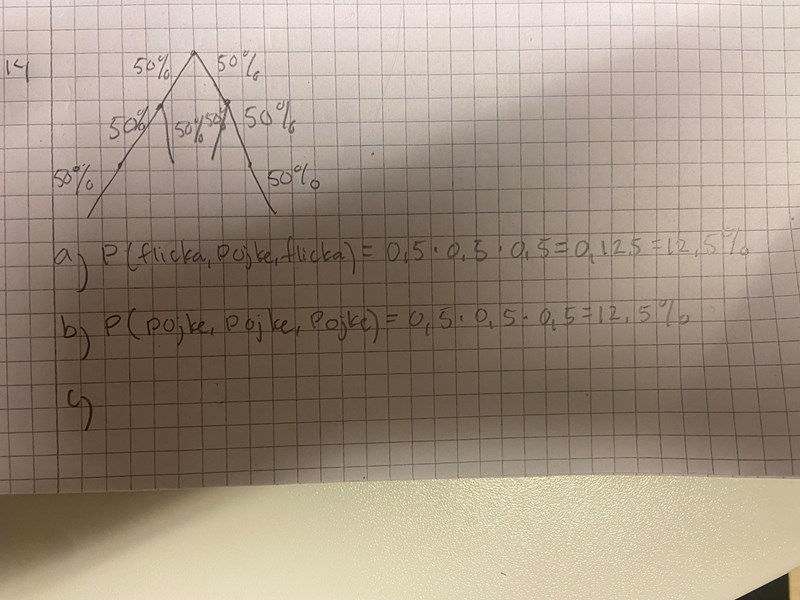 14
50% 50%
50% 50% 50% 50%
50% 50%
a) P(flicka, pojke, flicka) = 0,5 · 0,5 · 0,5 = 0,125 = 12,5%
b) P(pojke, pojke, pojke) = 0,5 · 0,5 · 0,5 = 12,5%
c)